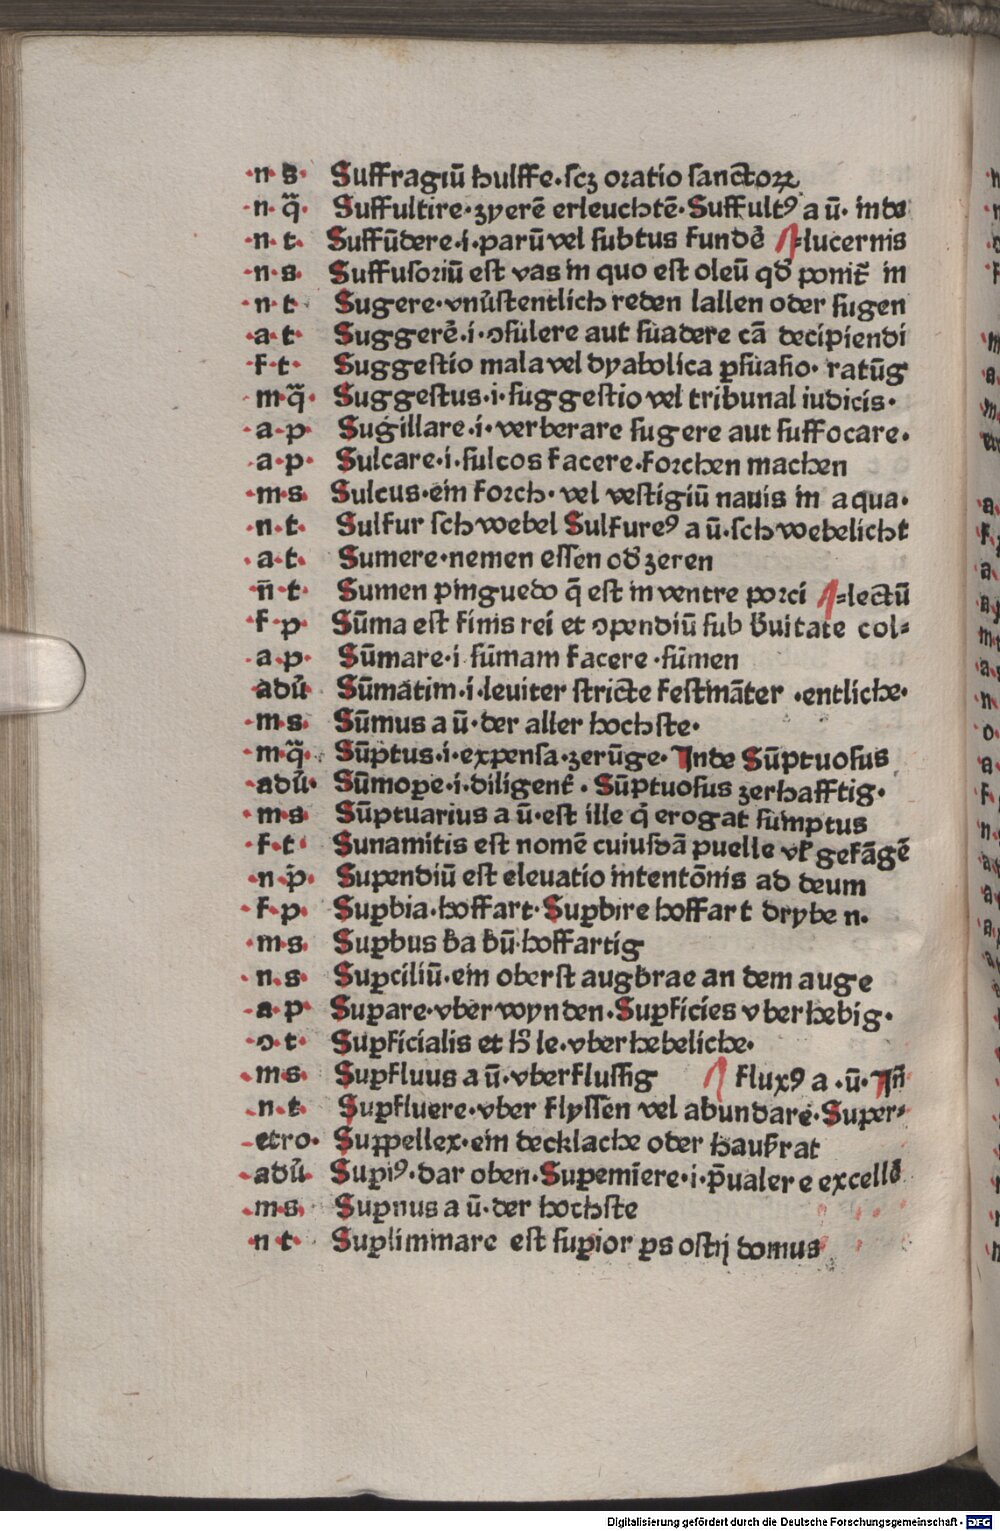 ·n· s· Suffragiū hulffe·ſcʒ oratio ſanctoꝝ
·n· q̄· Suffultire·zyerē erleuchtē·Suffultꝰ a ū· inde
·n· t· Suffūdere·i·parū vel ſubtus fundē ¶=lucernis
·n· s· Suffuſoriū eſt vas in quo eſt oleū qđ ponit̄ in
·n· t· Sugere·vnůſtentlich reden lallen oder ſugen
·a· t· Suggerē·i·ↄſulere aut ſuadere cā decipiendi
·f· t· Suggeſtio mala vel dyabolica ꝑſuaſio· ratūg
·m·q̄· Suggeſtus·i·ſuggeſtio vel tribunal iudicis·
·a·p· Sugillare·i·verberare ſugere aut ſuffocare·
·a·p· Sulcare·i·ſulcos facere·forchen machen
·m·s· Sulcus·ein forch·vel veſtigiū nauis in aqua·
·n·t· Sulfur ſchwebel Sulfureꝰ a ū·ſchwebelicht
·a·t· Sumere·nemen eſſen ođ zeren
n̄·t· Sumen pinguedo q̄ eſt in ventre porci ¶=lectū
·f·p· Sūma eſt finis rei et ↄpendiū ſub b̄uitate col=
·a·p· Sūmare·i ſūmam facere·ſūmen
adū· Sūmatim·i·leviter ſtricte feſtināter ·entliche·
·m·s· Sūmus a ū·der aller hochſte·
·m·q̄· Sūptus·i·expenſa·zerūge·Inde Sūptuoſus
·adū· Sūmoꝑe·i·diligent̄·Sūptuoſus zerhafftig·
·m·s· Sūptuarius a ū·eſt ille q̄ erogat ſumptus
·f·t· Sunamitis eſt nomē cuiuſdā puelle vl̄ gefāgē
·n·p̄· Suꝑendiū eſt elevatio intentōnis ad deum
·f·p· Suꝑbia·hoffart·Suꝑbire hoffart dryben·
·m·s· Suꝑbus b̄a b̄ū·hoffartig
·n·s· Suꝑciliū·ein oberſt augbrae an dem auge
·a·p· Suꝑare·vber wynden·Suꝑficies vberhebig·
·ↄ·t· Suꝑficialis et h̄ le·vberhebeliche·
·m·s· Suꝑfluus a ū·vberfluſſig ¶ fluxꝰ a·ū·In̄
·n·t· Suꝑfluere·vber flyſſen vel abundare·Super=
·etro· Suꝑpellex·ein decklache oder hauſrat
·adū· Suꝑiꝰ·dar oben·Suꝑemīere·i·p̄ualere excellē
·m·s· Suꝑnus a ū·der hochſte
·n t· Suꝑliminare eſt ſuꝑior ꝑs oſtij domus
Digitalisierung gefördert durch die Deutsche Forschungsgemeinschaft - DFG